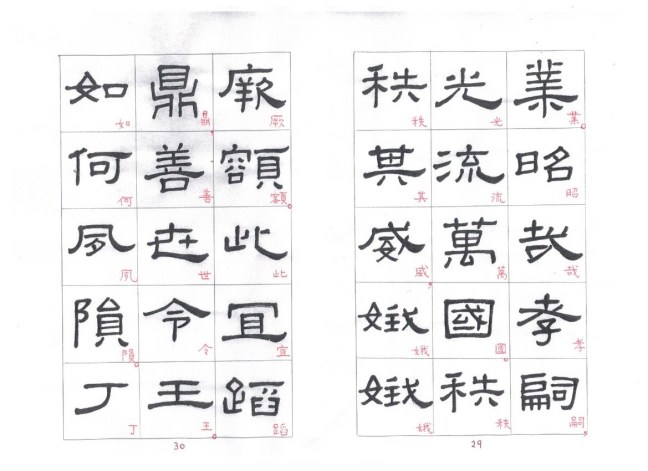 業昭哉孝嗣
業。昭哉孝嗣,
光流萬國秩
光流萬國。秩
秩其威娥娥
秩其威,娥娥
29
厥額此宜蹈
厥額。此宜蹈
鼎善世令王
鼎,善世令王。
如何夙隕丁
如何夙隕。丁
30